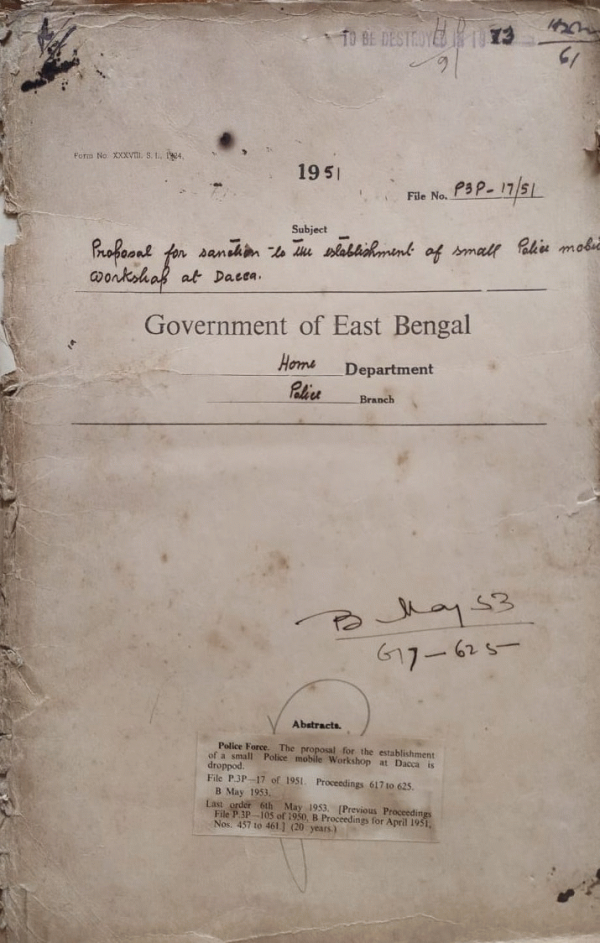 TO BE DESTROYED IN 1973
61
91
Form No XXXVIII. S. I., 1924.
1951
File No. P3P-17/51
Subject
Proposal for sanction to the establishment of small Police mobile
workshop at Dacca.
Government of East Bengal
Home Department
Police Branch
B May 53
617-625
Abstracts.
Police Force. The proposal for the establishment
of a small Police mobile Workshop at Dacca is
droppod.
File P.3P—17 of 1951. Proceedings 617 to 625.
B May 1953.
Last order 6th May 1953. [Previous Proceedings
File P.3P—105 of 1950, B Proceedings for April 1951,
Nos. 457 to 461.] (20 years.)